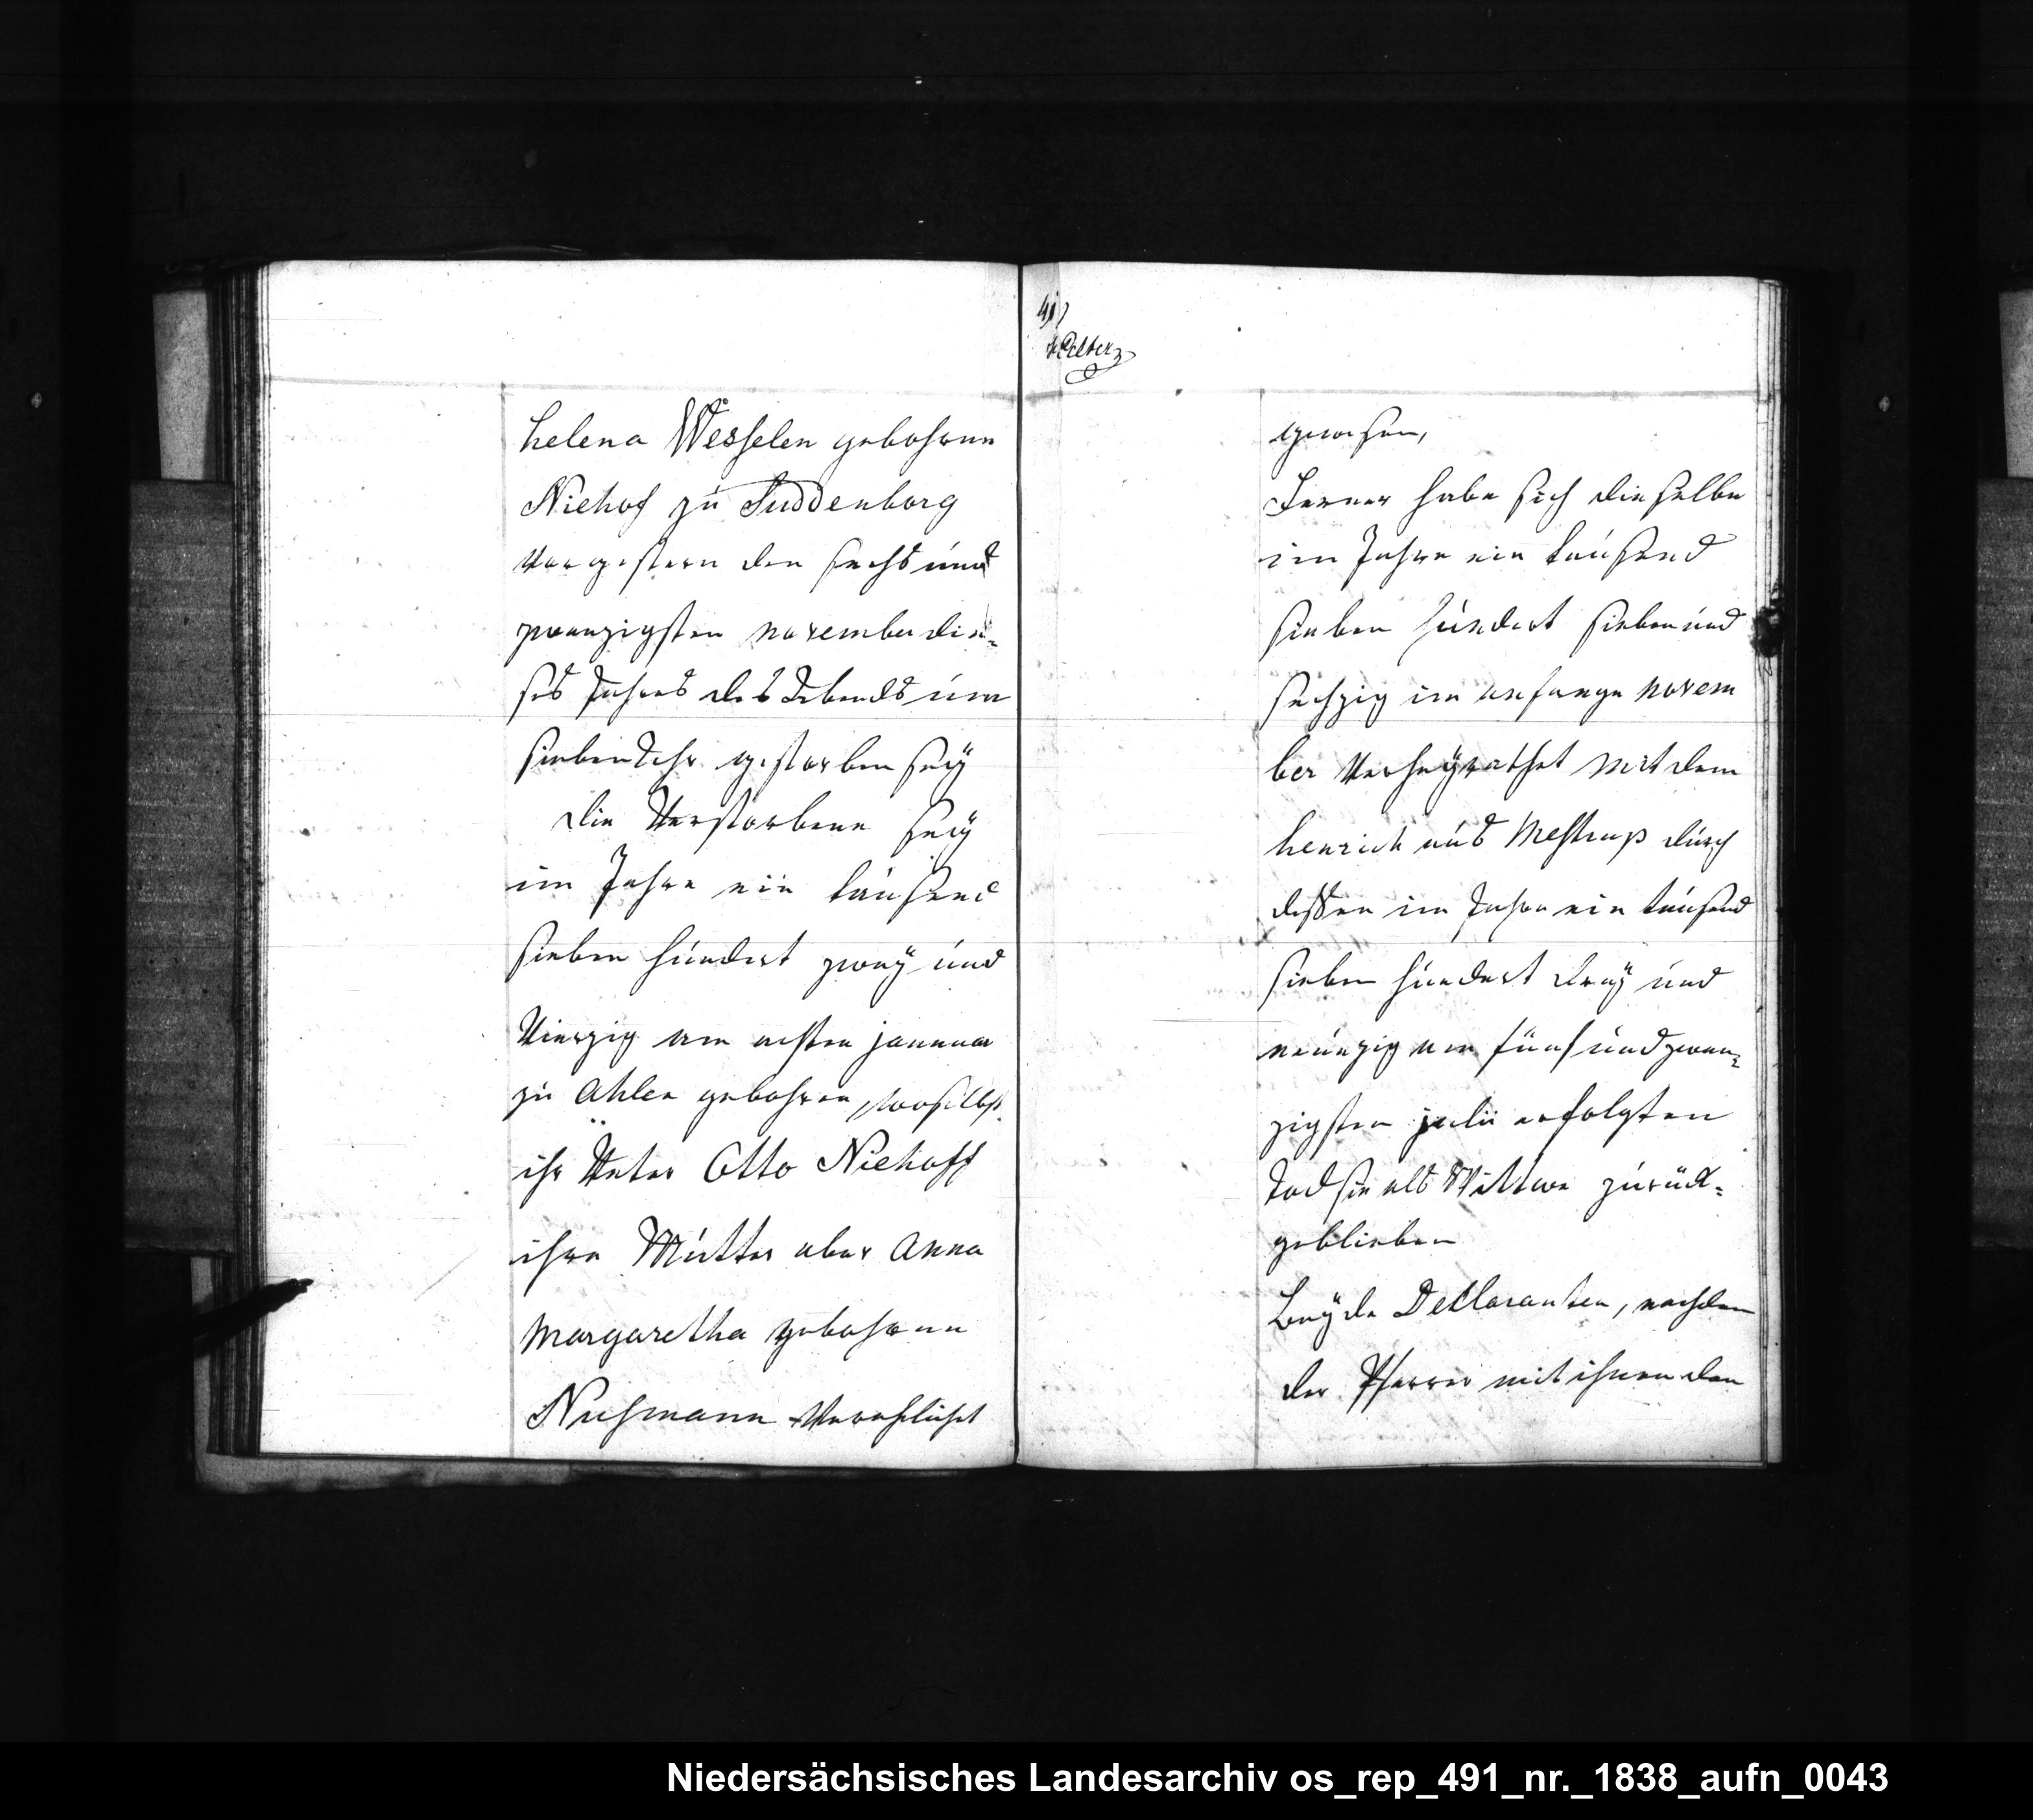 helena Wesselen gebohrne
Niehof zu Suddenborg
vorgestern den sechs und
zwanzigsten november die=
ses Jahres des Abends um
sieben Uhr gestorben sey
die Verstorbene sey
im Jahre ein tausend
sieben hundert zwey und
vierzig am ersten januar
zu Ahlen gebohren, woselbst
ihr Vater Otto Niehoff
ihre Mutter aber Anna
Margaretha gebohrne
verehlicht
41)
gewesen,
Ferner habe sich dieselbe
im Jahre ein tausend
sieben hundert sieben und
sechzig im anfange novem
ber verheyrathet mit dem
henrich aus Mestrup durch
dessen im Jahre ein tausend
sieben hundert drey und
neunzig am fünf und zwan=
zigsten julii erfolgten
Tod sie als Wittwe zurück=
geblieben
Beyde Declaranten, nachdem
der Pfarrer mit ihnen den
Niedersächsisches Landesarchiv os_rep_491_nr._1838_aufn_0043